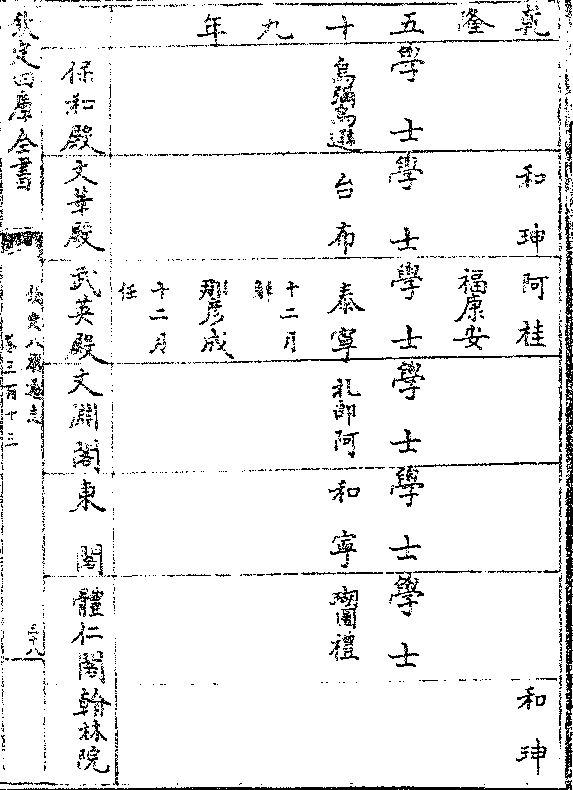 乾隆五十九年
和珅
阿桂
和珅
福康安
學士
學士
學士
學士
學士
學士
台布
泰寧
札郎阿
和寧
瑚圖禮
十二月
卸
那彥成
十二月
任
保和殿
文華殿
武英殿
文淵閣
東閣
體仁閣
翰林院
欽定四庫全書
欽定八旗通志
卷三百十三